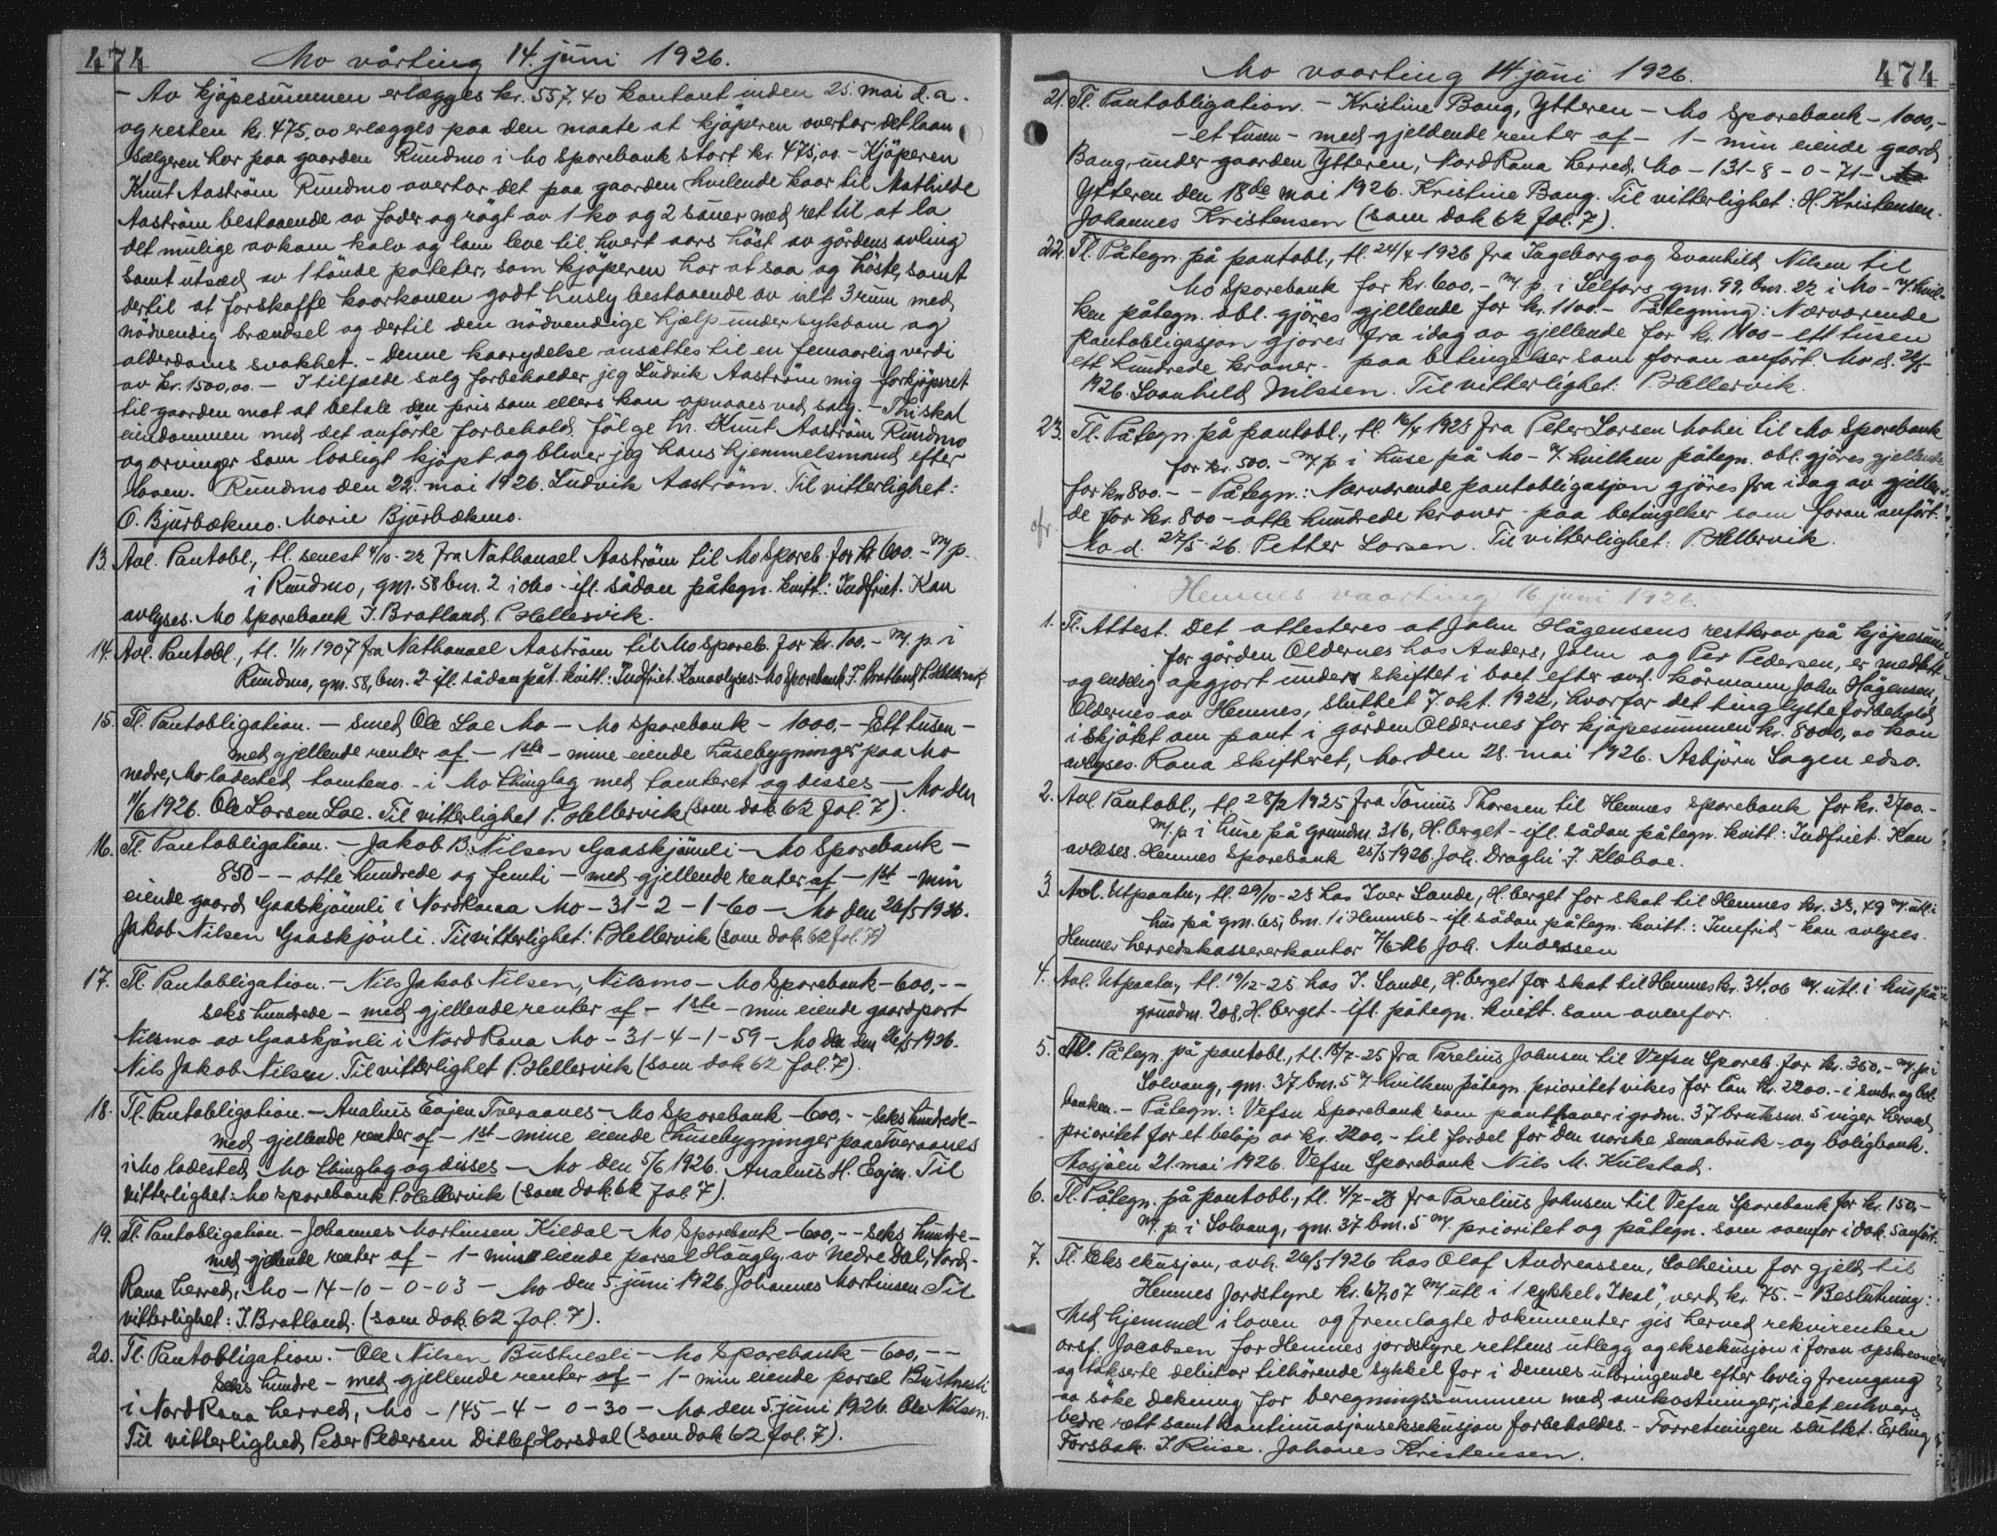 474 Mo vårting 14. juni 1926.
- Av kjöpesummen erlægges kr. 557,40 kontant inden 25. mai d.a.
og resten kr. 475,00 erlægges paa den maate at kjöperen overtar det laan
sælgeren har paa gaarden Rundmo i Mo Sparebank stort kr. 475,00. - Kjöperen
Knut Aaström Rundmo overtar det paa gaarden hvilende kaar til Mathilde
Aaström bestaaende av foder og rögt av 1 ko og 2 söuer med ret til at la
det mulige avkom kalv og lam leve til hvert aars höst av gårdens avling
samt utsæd av 1 tönde poteter, som kjöperen har at saa og höste, samt
dertil at forskaffe kaarkonen godt husly bestaaende av ialt 3 rum med
nödvendig brændsel og dertil den nödvendige hjælp under sykdom og
alderdoms svakhet. - Denne kaarydelse ansættes til en femaarlig verdi
av kr. 1500,00. - I tilfælde salg forbeholder jeg Ludvik Aaström mig forkjöpsret
til gaarden mot at betale den pris som ellers kan opnaaes ved salg. - Thi skal
eiendommen med det anförte forbehold fölge hr. Knut Aaström Rundmo
og arvinger som lovligt kjöpt og bliver jeg hans hjemmelsmand efter
loven. Rundmo den 22. mai 1926. Ludvik Aaström. Til vitterlighet:
O. Bjurbækmo. Marie Bjurbækmo.
13. Avl. Pantobl., tl. senest 4/10-22 fra Nathanael Aaström til Mo Spareb. for kr 600.- m/ p.
i Rundmo, gnr. 58 bnr. 2 i Mo - ifl. sådan påtegn. kvitt.: Indfriet. Kan
avlyses. Mo Sparebank J. Bratland. P. Hellervik.
14. Avl. Pantobl., tl. 1/11 1907 fra Nathanael Aaström til Mo Spareb. for kr. 100.- m/ p. i
Rundmo, gnr. 58, bnr. 2 ifl. sådan påt. kvitt.: Indfriet. Kan avlyses. Mo Sparebank J. Bratland, P. Hellervik
15. Tl. Pantobligation. - Smed Ole Loe Mo - Mo Sparebank - 1000,- - Ett tusen -
med gjellende renter af - 1ste - mine eiende husebygninger paa Mo
nedre, Mo ladested tomteno. - i Mo thinglag med tomteret og disses - Mo den
11/6 1926. Ole Larsen Loe. Til vitterlighet P. Hellervik (som dok 62 fol. 7).
16. Tl. Pantobligation. - Jakob B. Nilsen Gaaskjönli - Mo Sparebank -
850 - - otte hundrede og femti - med gjellende renter af - 1st - min
eiende gaard Gaaskjönli i Nord Rana Mo - 31 - 2 - 1 - 60 - Mo den 26/5 1926.
Jakob Nilsen Gaaskjönli. Til vitterlighet: P. Hellervik (som dok. 62 fol. 7)
17. Tl. Pantobligation. - Nils Jakob Nilsen, Nilsmo - Mo Sparebank - 600,- -
seks hundrede - med gjellende renter af - 1ste - min eiende gaardpart
Nilsmo av Gaaskjönli i Nord Rana Mo - 31 - 4 - 1 - 59 - Mo den 26/5 1926.
Nils Jakob Nilsen. Til vitterlighet P. Hellervik (som dok 62 fol. 7).
18. Tl. Pantobligation. - Analius Enjen Tveraanes - Mo Sparebank - 600,- - seks hundrede -
med gjellende renter af - 1st - mine eiende husebygninger paa Tveraanes
i Mo ladested Mo thinglag og disses - Mo den 5/6 1926. Analius H. Enjen. Til
vitterlighet: Mo Sparebank P. Hellervik (som dok. 62 fol. 7).
19. Tl. Pantobligation - Johannes Martinsen Kildal - Mo Sparebank - 600,- - seks hundre -
med gjellende renter af - 1 - min eiende parsel Haugly av Nedre Dal, Nord-
Rana herred, Mo - 14 - 10 - 0 - 03 - Mo den 5. juni 1926. Johannes Martinsen. Til
vitterlighet: J. Bratland. (som dok. 62 fol. 7).
20. Tl. Pantobligation. - Ole Nilsen Bustnesli - Mo Sparebank - 600,- -
seks hundre - med gjellende renter af - 1 - min eiende parsel Bustnesli
i Nord Rana herred, Mo - 145 - 4 - 0 - 30 - Mo den 5. juni 1926. Ole Nilsen.
Til vitterlighed Peder Pedersen Ditlef Horsdal (som dok 62 fol. 7).
Mo vaarting 14. juni 1926. 474
21. Tl. Pantobligation. - Kristine Bang, Ytteren - Mo Sparebank - 1000,-
- et tusen - med gjeldende renter af - 1 - min eiende gaard
Bang, under gaarden Ytteren, Nord Rana herred, Mo - 131 - 8 - 0 - 71 -
Ytteren den 18de mai 1926. Kristine Bang. Til vitterlighet: H. Kristensen.
Johannes Kristensen (som dok 62 fol. 7).
22. Tl. Påtegn. på pantobl., tl. 24/4 1926 fra Ingeborg og Svanhild Nilsen til
Mo Sparebank for kr. 600.- m/ p. i Selfors gnr. 99, bnr. 22 i Mo - v/ hvil-
ken påtegn. obl. gjöres gjellende for kr. 1100.- Påtegning: Nærværende
pantobligasjon gjöres fra idag av gjellende for kr. 1100 - ett tusen
ett hundrede kroner. paa betingelser som foran anfört. Mo d. 22/5
1926. Svanhild Nilssen. Til vitterlighet: P. Hellervik.
23. Tl. Påtegn. på pantobl., tl. 16/4 1923 fra Peter Larsen Mohei til Mo Sparebank
for kr. 500.- m/ p. i huse på Mo - v/ hvilken påtegn. obl. gjöres gjellende
for kr. 800. - - Påtegn.: Nærværende pantobligasjon gjöres fra idag av gjellen-
de for kr. 800 - otte hundrede kroner - paa betingelser som foran anfört.
Mo d. 27/5-26. Petter Larsen. Til vitterlighet: P. Hellervik.
Hemnes vaarting 16 juni 1926.
1. Tl. Attest. Det attesteres at John Hågensens restkrav på kjöpesum
for gården Oldernes hos Anders, John og Per Pedersen, er medtatt
og endelig opgjort under skiftet i boet efter avd. kormann John Hågensen,
Oldernes av Hemnes, sluttet 7. okt. 1922, hvorfor det tinglyste forbehold
i skjötet om pant i gården Oldernes for kjöpesummen kr. 8000,00 kan
avlyses. Rana skifterett, Mo den 28. mai 1926. Asbjörn Lagen edsv.
2. Avl. Pantobl., tl. 28/2 1925 fra Tonius Thoresen til Hemnes Sparebank for kr. 2700.-
m/ p. i huse på grundnr. 316, H.berget - ifl. sådan påtegn. kvitt.: Indfriet. Kan
avleses. Hemnes Sparebank 25/5 1926. Joh. Draglri J. Klæboe.
3. Avl. Utpantn., tl. 29/10-25 hos Iver Sande, H.berget for skat til Hemnes kr. 38,49 m/ utl. i
hus på gnr. 65, bnr. 1 i Hemnes - ifl. sådan påtegn. kvitt.: Innfrid - kan avlyses.
Hemnes herredskassererkontor 7/6-26 Joh. Anderssen
4. Avl. Utpantn., tl. 19/12-25 hos I. Sande, H.berget for skat til Hemnes kr. 34.06 m/ utl. i hus på
grundnr. 208, H.berget - ifl. påtegn. kvitt. som ovenfor.
5. Tl. Påtegn. på pantobl., tl. 15/7-25 fra Parelius Johnsen til Vefsn Spareb. for kr. 350,- m/ p. i
Solvang, gnr. 37 bnr. 5 v/ hvilken påtegn. prioritet vikes for lån kr. 2200.- i smbr. og bol.
banken. - Påtegn.: Vefsn Sparebank som panthaver i grdnr. 37 bruksnr. 5 viger herved
prioritet for et belöp av kr. 2200,- til fordel for den norske smaabruk - og boligbank.
Mosjöen 21. mai 1926. Vefsn Sparebank Nils M. Kulstad.
6. Tl. Påtegn. på pantobl., tl. 4/7-23 fra Parelius Johnsen til Vefsn Sparebank for kr. 150,-
m/ p. i Solvang, gnr. 37 bnr. 5 m/ prioritet og påtegn. som ovenfor i dok. 5 anfört.
7. Tl. Eksekusjon, avh. 26/5 1926 hos Olaf Andreassen, Solheim for gjeld til
Hemnes Jordstyre kr. 67,07 m/ utl i 1 cykkel "Ideal", verd kr. 75.- Beslutning:
Med hjemmel i loven og fremlagte dokumenter gis herved rekvirenten
orsf. Jacobsen for Hemnes jordstyre rettens utlegg og eksekusjon i foran opskrevne
og takserte debitor tilhörende sykkel for i dennes utbringende efter lovlig fremgang
aa söke dekning for beregningssummen med omkostninger, idet enhvers
bedre rett samt kontinuasjonseksekusjon forbeholdes. - Forretningen sluttet. Erling
Forsbak. J. Riise. Johanes Kristensen.